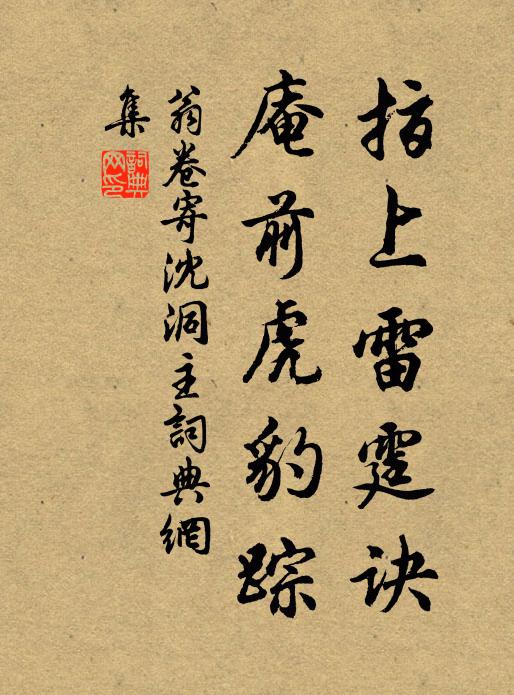 指上雷霆诀
庵前虎豹踪
翁卷寄沈洞主詞典網
集
詞典
网印